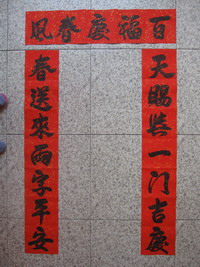 百福慶春風
天賜與一门吉慶
春送來兩字平安